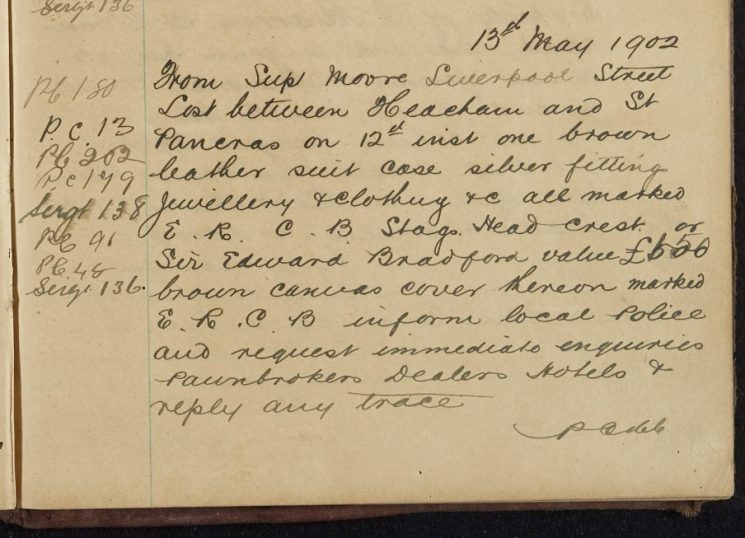 Sergt 136
13th May 1902
Pc 180
From Sup Moore Liverpool Street
Lost between Heacham and St
P.C. 13
Pancras on 12th inst one brown
Pc. 202
leather suit case silver fitting
Pc 179
Jewillery & clothing &c all marked
Sergt 138
E. R. C. B Stags. Head crest. or
Pc 91
Sir Edward Bradford value
Pc. 48
brown canvas cover thereon marked
Sergt. 136.
E. R. C. B inform local Police
and request immediate enquiries
Pawnbrokers Dealers Hotels &
reply any trace